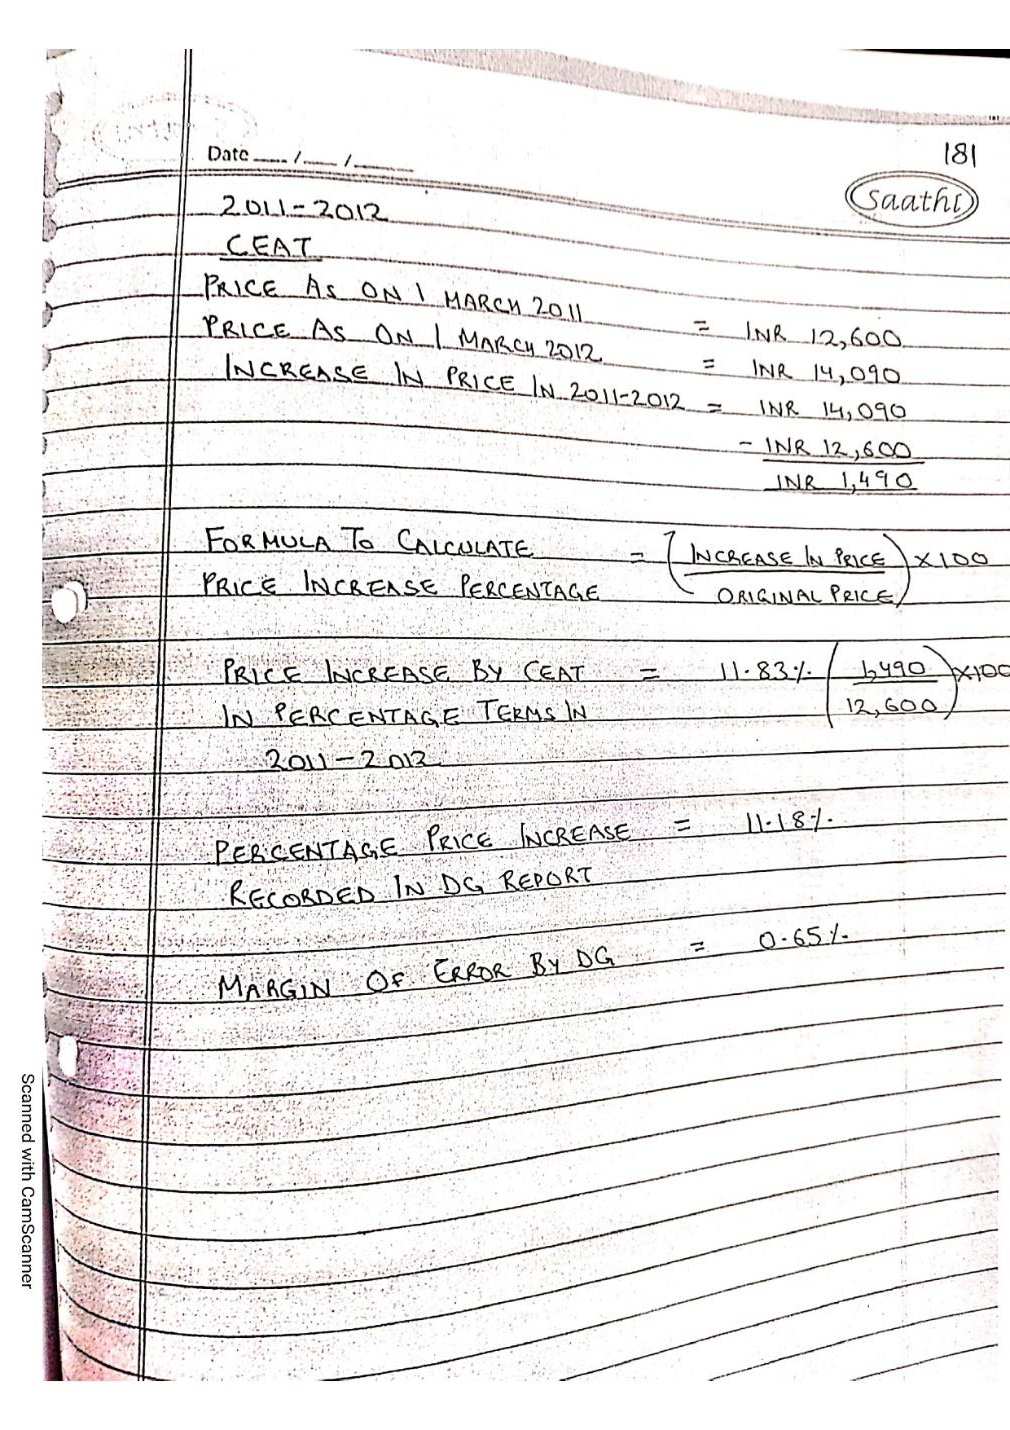 Date __/__/__
181
saathi
2011-2012
CEAT
PRICE AS ON 1 MARCH 2011 = INR 12,600
PRICE AS ON 1 MARCH 2012 = INR 14,090
INCREASE IN PRICE IN 2011-2012 = INR 14,090
- INR 12,600
INR 1,490
FORMULA TO CALCULATE = (INCREASE IN PRICE) X100
PRICE INCREASE PERCENTAGE ORIGINAL PRICE
PRICE INCREASE BY CEAT = 11.83% (1,490) X100
IN PERCENTAGE TERMS IN 12,600
2011-2012
PERCENTAGE PRICE INCREASE = 11.18%
RECORDED IN DG REPORT
MARGIN OF ERROR BY DG = 0.65%
Scanned with CamScanner